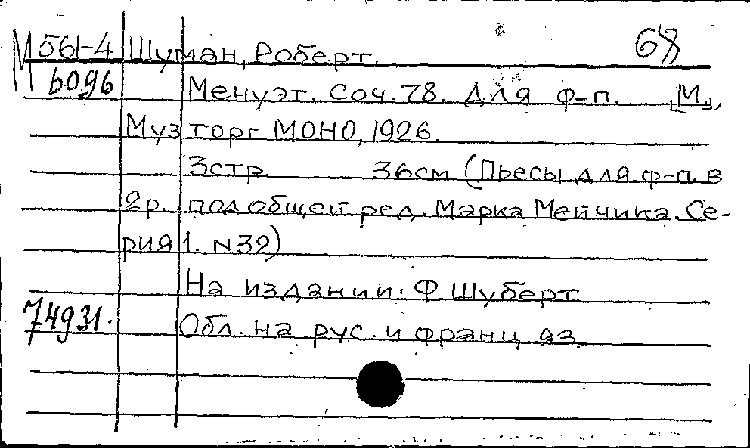 М 561-4 Шуман, Роберт. 68
6096 Менуэт. Соч. 78. Для ф-п. [М.],
Музторг МОНО, 1926.
3стр. 36см (Пьесы для ф-п. в
2р. под общей ред. Марка Мейчика. Се-
рия 1. N32)
На издании: Ф Шуберт
74931. Обл. на рус. и франц яз.